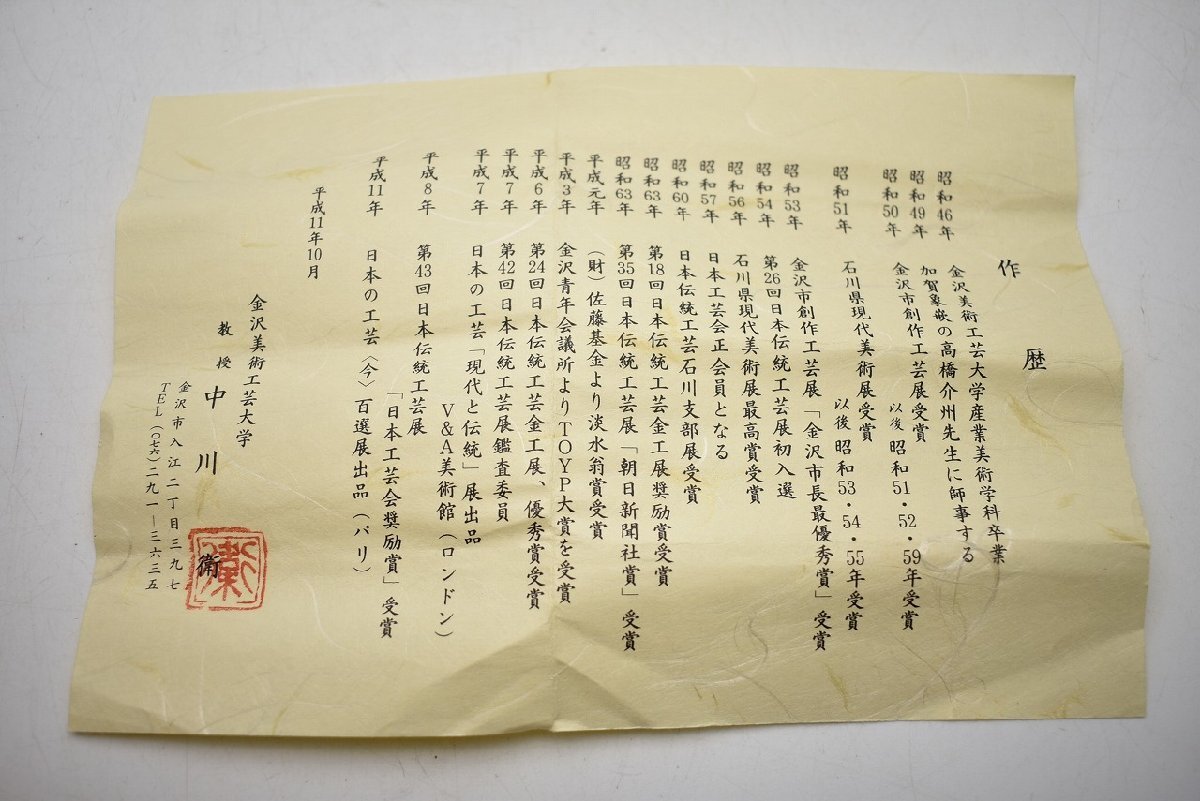 作歴
昭和46年 金沢美術工芸大学産業美術学科卒業
昭和49年 加賀象嵌の高橋介州先生に師事する
昭和50年 金沢市創作工芸展受賞
以後 昭和51・52・59年受賞
昭和51年 石川県現代美術展受賞
以後 昭和53・54・55年受賞
昭和53年 金沢市創作工芸展「金沢市長最優秀賞」受賞
昭和54年 第26回日本伝統工芸展初入選
昭和56年 石川県現代美術展最高賞受賞
昭和57年 日本工芸会正会員となる
昭和60年 日本伝統工芸石川支部展受賞
昭和63年 第18回日本伝統工芸金工展奨励賞受賞
昭和63年 第35回日本伝統工芸展「朝日新聞社賞」受賞
平成元年 (財)佐藤基金より淡水翁賞受賞
平成3年 金沢青年会議所よりTOYP大賞を受賞
平成6年 第24回日本伝統工芸金工展、優秀賞受賞
平成7年 第42回日本伝統工芸展鑑査委員
平成7年 日本の工芸「現代と伝統」展出品
V&A美術館(ロンドン)
平成8年 第43回日本伝統工芸展
「日本工芸会奨励賞」受賞
平成11年 日本の工芸〈今〉百選展出品(パリ)
平成11年10月
金沢美術工芸大学
教授 中川 衛
金沢市入江二丁目三九七
TEL(〇七六)二九一ー三六三五